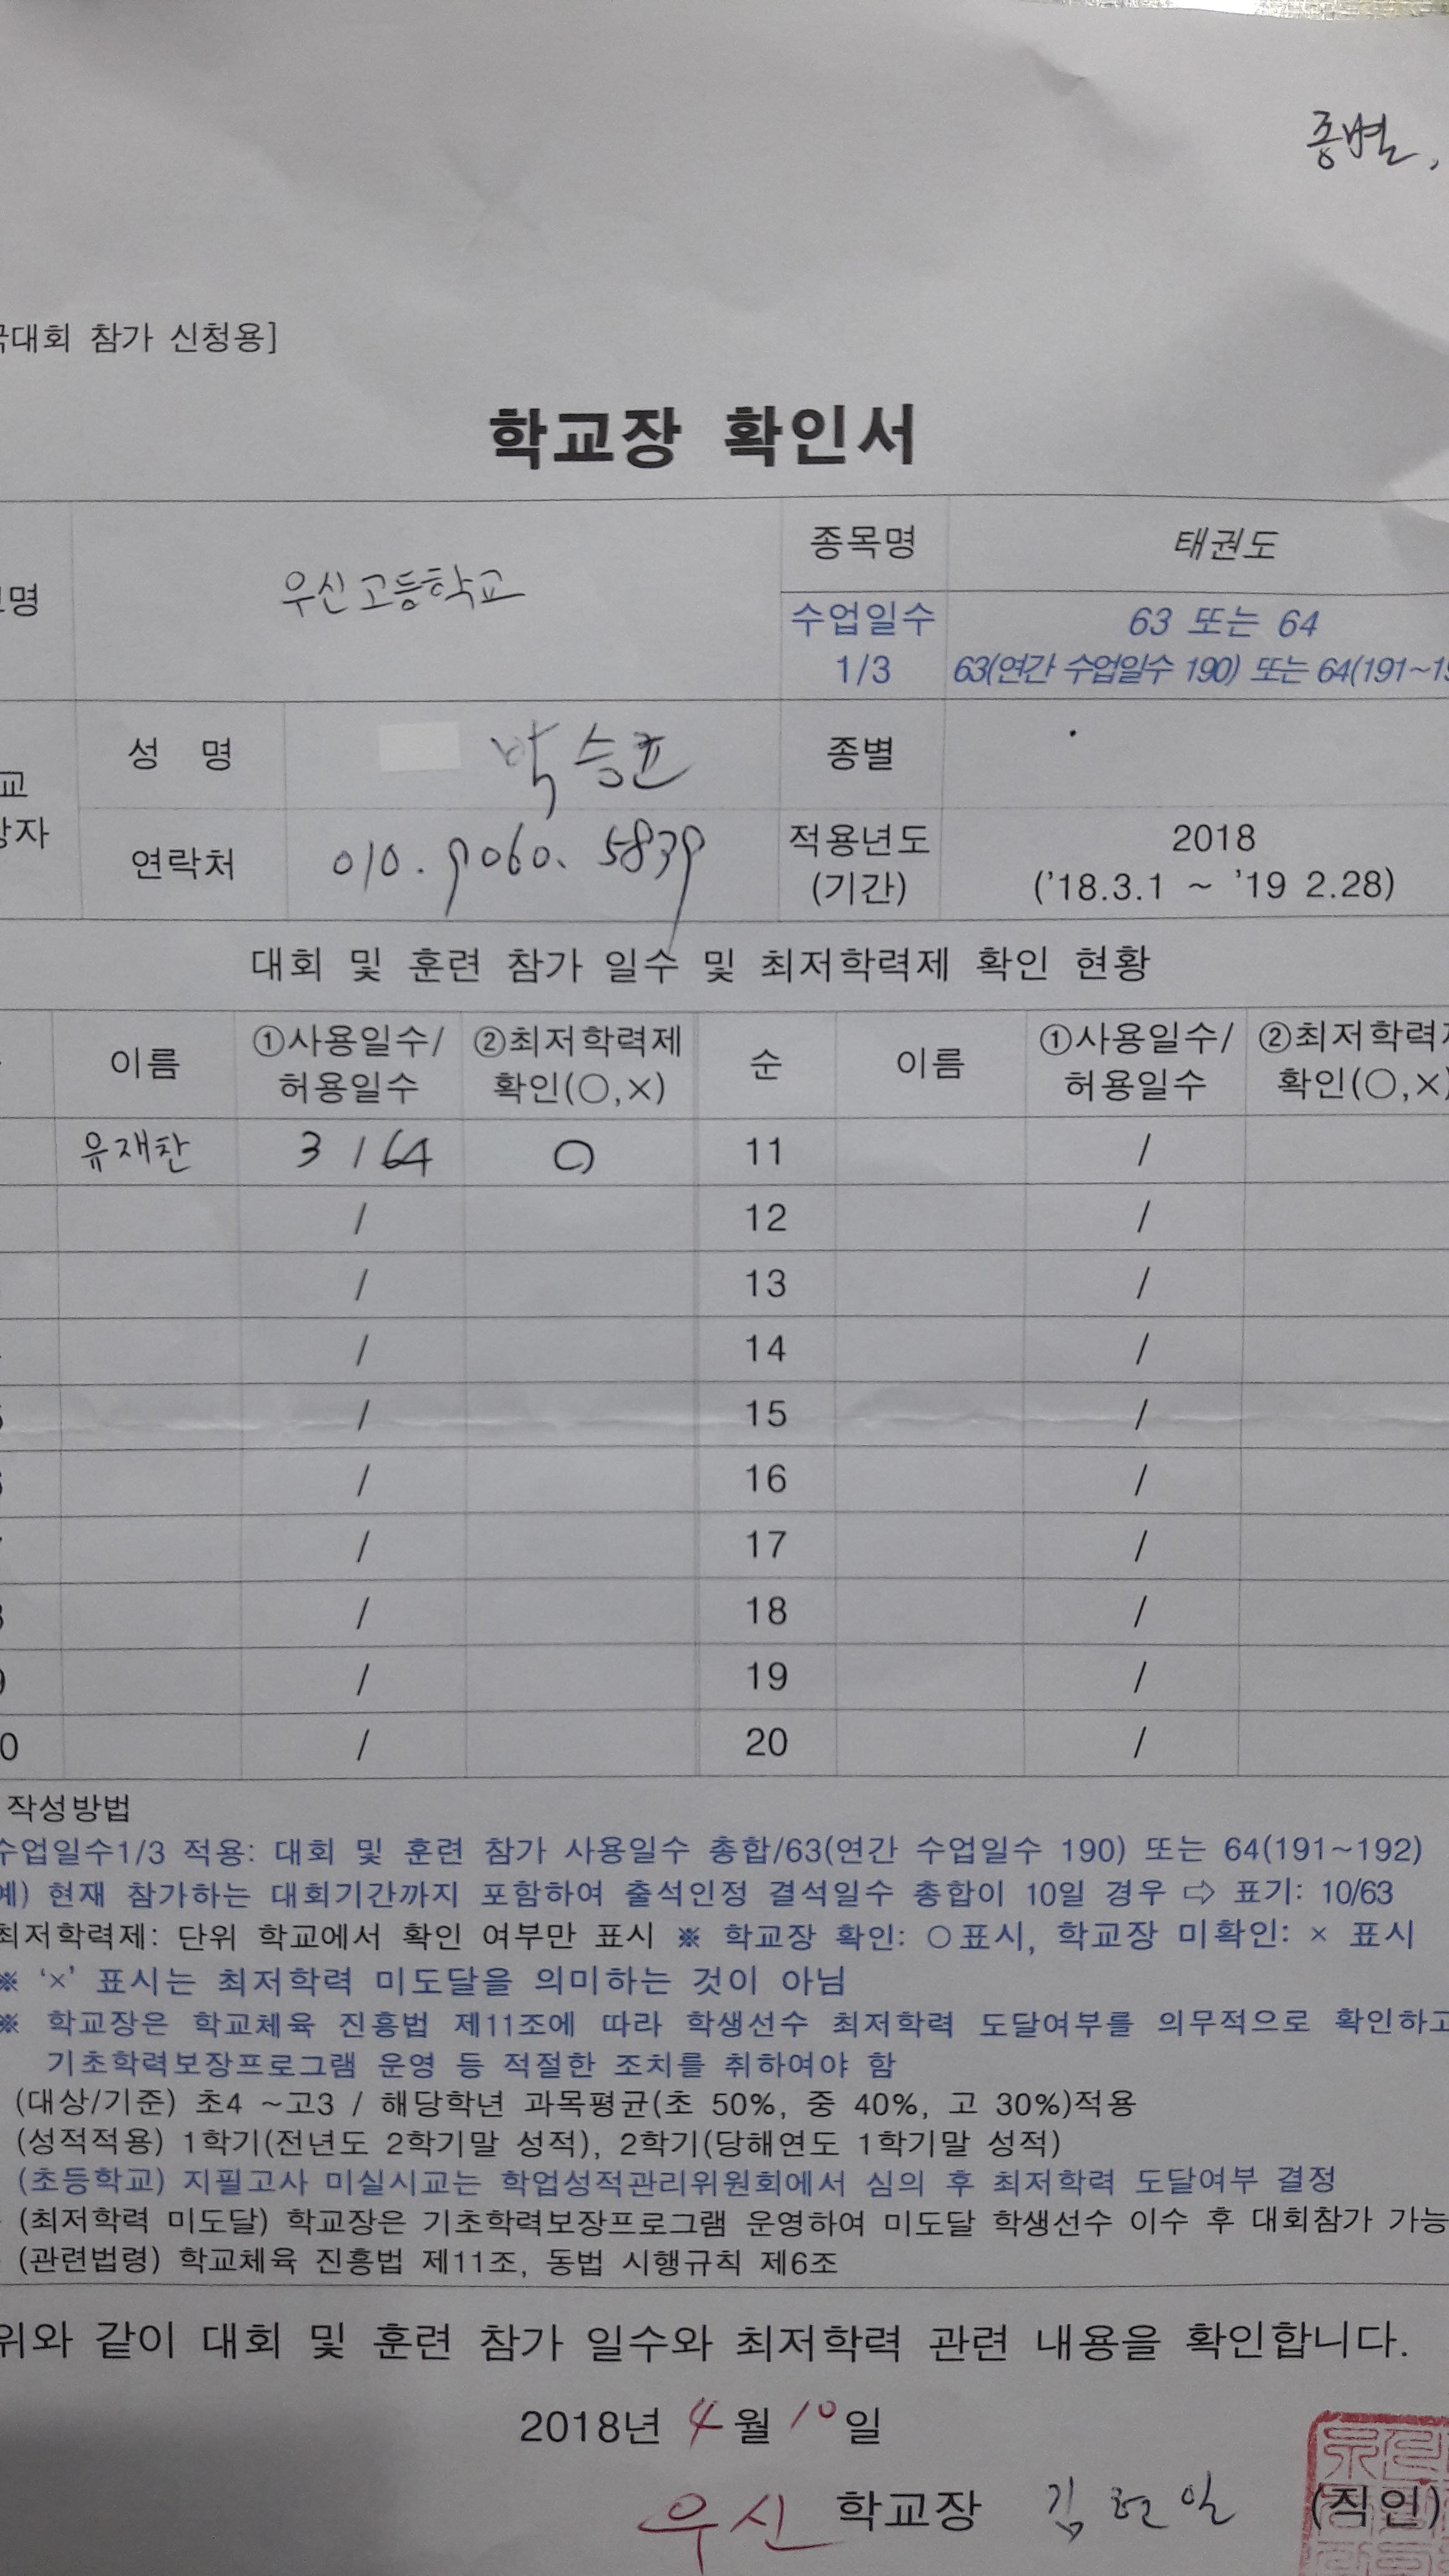 종별,
국대회 참가 신청용]
학교장 확인서
교명 우신고등학교 종목명 태권도
수업일수 1/3 63 또는 64
63(연간 수업일수 190) 또는 64(191~19
성 명 박승표 종별
연락처 010.9060.5839 적용년도 (기간) 2018 ('18.3.1 ~ '19 2.28)
대회 및 훈련 참가 일수 및 최저학력제 확인 현황
이름 ①사용일수/허용일수 ②최저학력제 확인(○,×) 순 이름 ①사용일수/허용일수 ②최저학력제 확인(○,×)
유재찬 3 / 64 ○ 11 /
/ 12 /
/ 13 /
/ 14 /
/ 15 /
/ 16 /
/ 17 /
/ 18 /
/ 19 /
0 / 20 /
작성방법
수업일수1/3 적용: 대회 및 훈련 참가 사용일수 총합/63(연간 수업일수 190) 또는 64(191~192)
예) 현재 참가하는 대회기간까지 포함하여 출석인정 결석일수 총합이 10일 경우 ⇨ 표기: 10/63
최저학력제: 단위 학교에서 확인 여부만 표시 ※ 학교장 확인: ○표시, 학교장 미확인: × 표시
※ '×' 표시는 최저학력 미도달을 의미하는 것이 아님
※ 학교장은 학교체육 진흥법 제11조에 따라 학생선수 최저학력 도달여부를 의무적으로 확인하고
기초학력보장프로그램 운영 등 적절한 조치를 취하여야 함
(대상/기준) 초4 ~고3 / 해당학년 과목평균(초 50%, 중 40%, 고 30%)적용
(성적적용) 1학기(전년도 2학기말 성적), 2학기(당해연도 1학기말 성적)
(초등학교) 지필고사 미실시교는 학업성적관리위원회에서 심의 후 최저학력 도달여부 결정
(최저학력 미도달) 학교장은 기초학력보장프로그램 운영하여 미도달 학생선수 이수 후 대회참가 가능
(관련법령) 학교체육 진흥법 제11조, 동법 시행규칙 제6조
위와 같이 대회 및 훈련 참가 일수와 최저학력 관련 내용을 확인합니다.
2018년 4월 10일
우신 학교장 김현일 (직인)